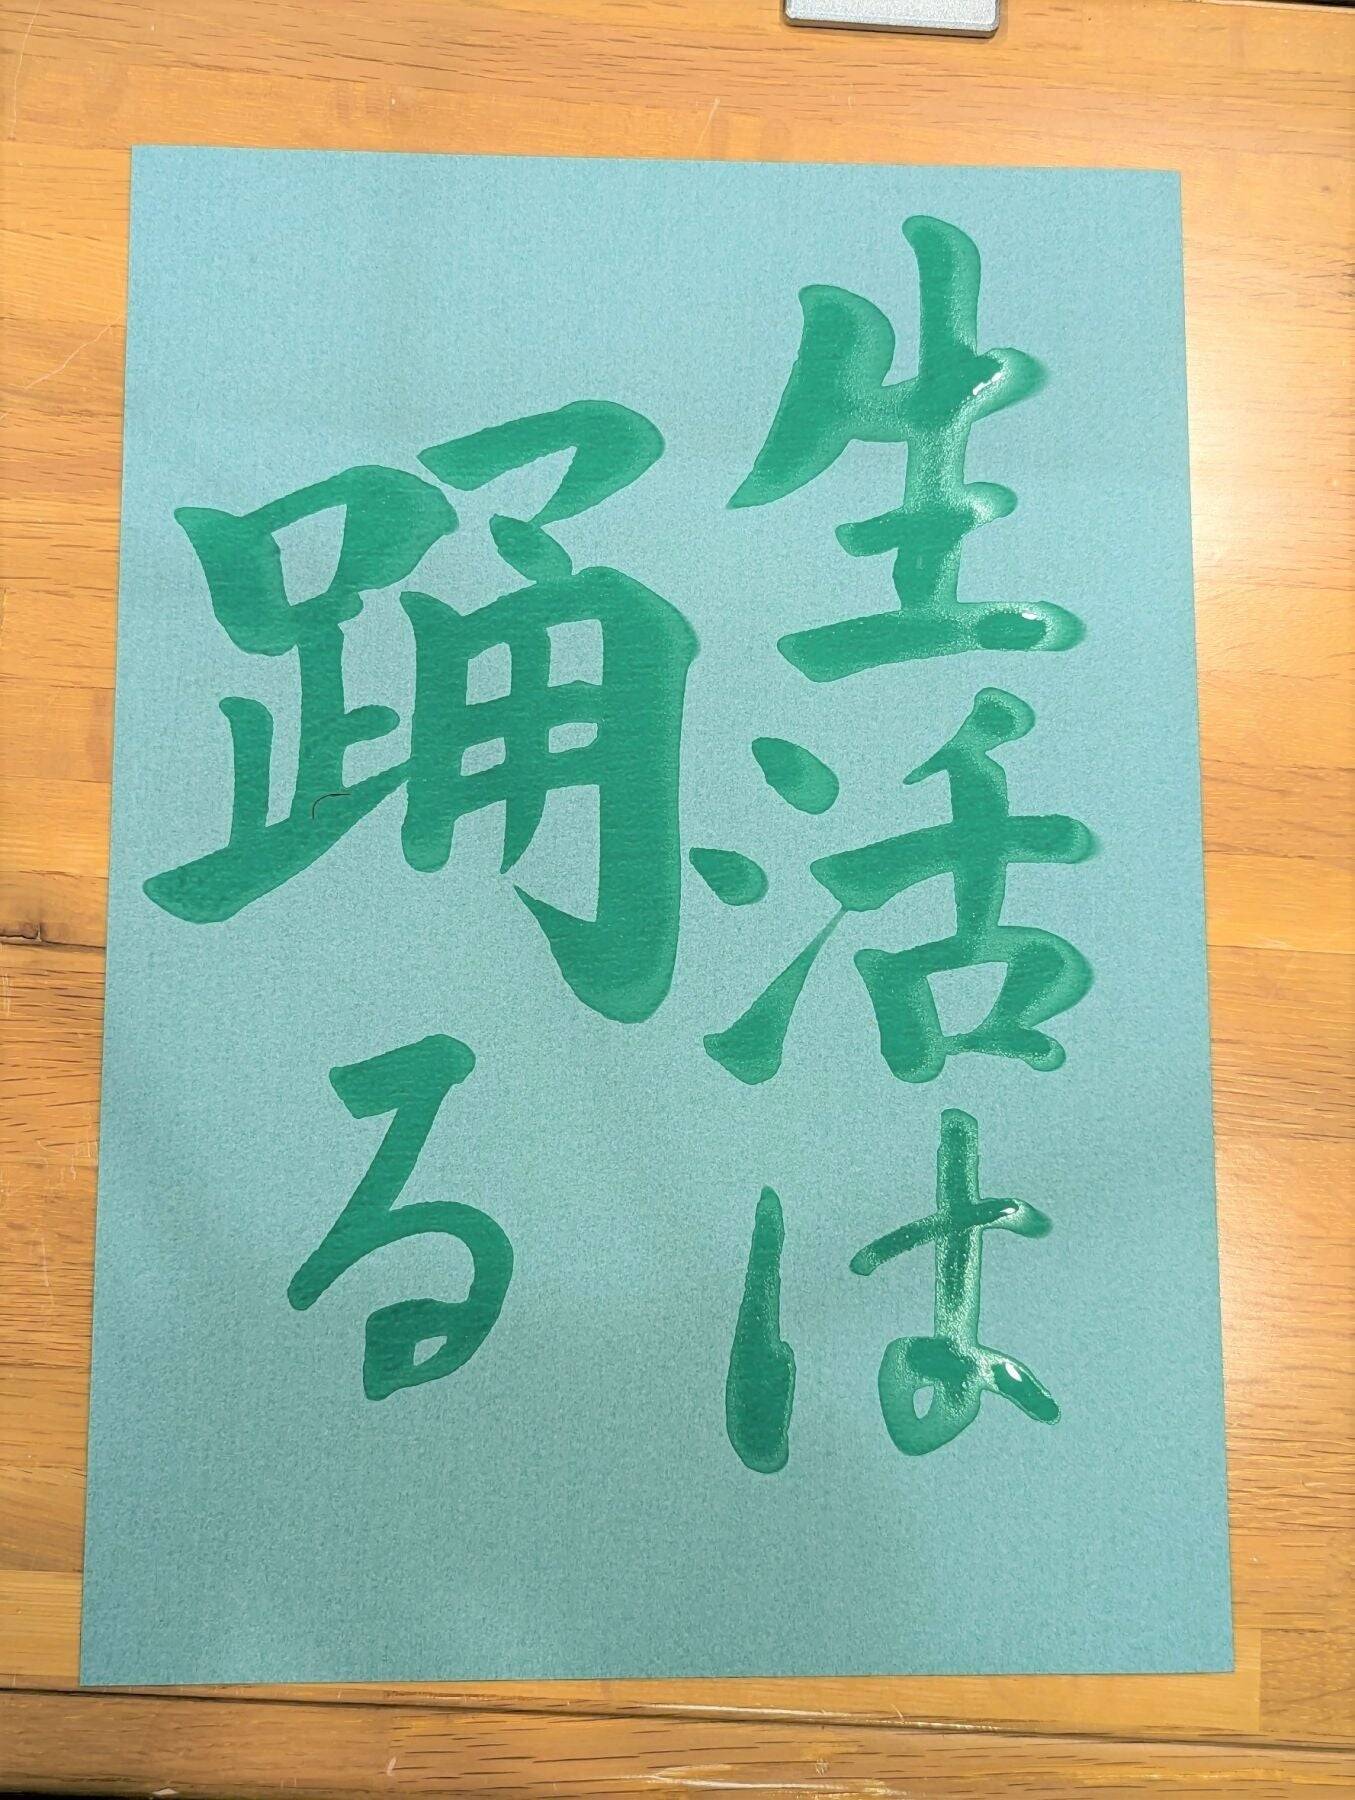 生活は
踊る